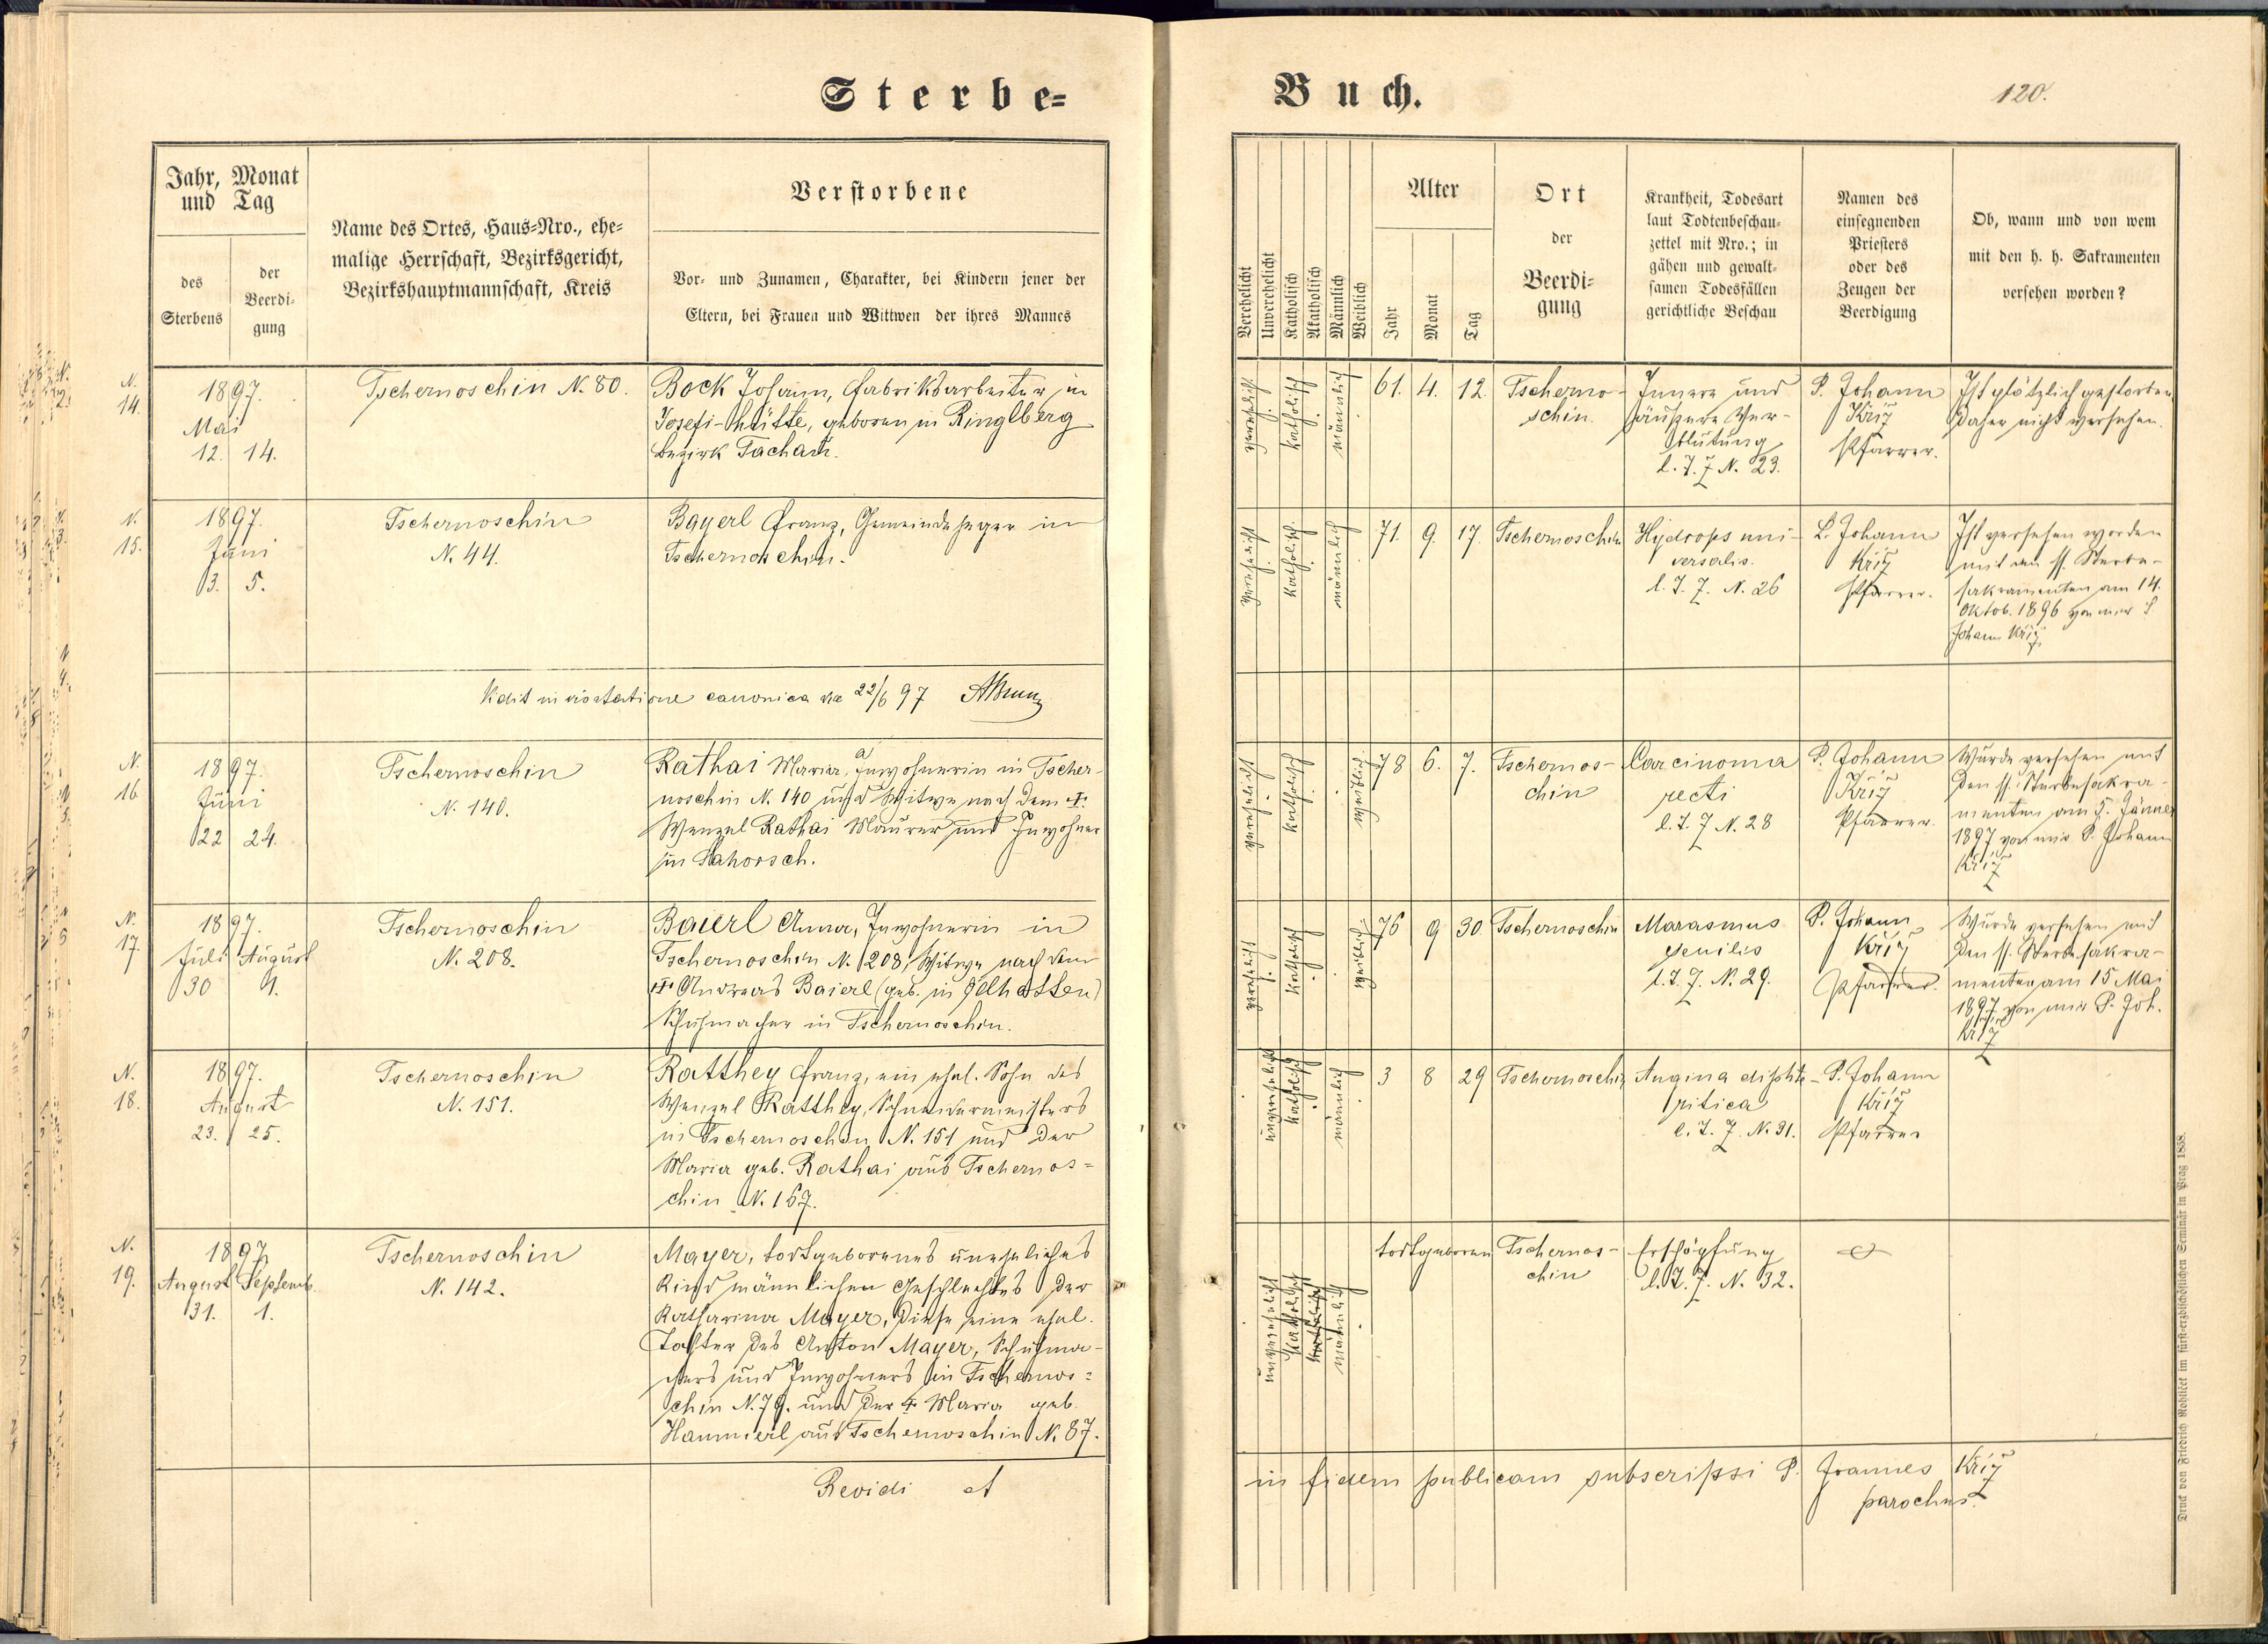 Sterbe=
Jahr, Monat
und Tag
des
Sterbens
der
Beerdi-
gung
Name des Ortes, Haus-Nro., ehe-
malige Herrschaft, Bezirksgericht,
Bezirkshauptmannschaft, Kreis
Verstorbene
Vor- und Zunamen, Charakter, bei Kindern jener der
Eltern, bei Frauen und Wittwen der ihres Mannes
N.
14.
1897.
Mai
12. 14.
Tschernoschin N. 80.
Bock Johann, Fabriksarbeiter in
Josefi-Hütte, geboren in Ringlberg
Bezirk Tachau.
N.
15.
1897.
Juni
3. 5.
Tschernoschin
N. 44.
Bayerl Franz, Gemeindeheger in
Tschernoschin.
canonica 22/6 97
N.
16
1897.
Juni
22 24.
Tschernoschin
N. 140.
Rathai Maria, Inwohnerin in Tscher-
noschin N. 140 und Witwe nach dem †
Wenzel Rathai Maurer und Inwohner
in Lahorsch.
N.
17.
1897.
Juli August
30 1.
Tschernoschin
N. 208.
Baierl Anna, Inwohnerin in
Tschernoschin N. 208, Witwe nach dem
† Andreas Baierl (geb. in Elhotten)
Schuhmacher in Tschernoschin.
N.
18.
1897.
August
23. 25.
Tschernoschin
N. 151.
Ratthey Franz, ein ehel. Sohn des
Wenzel Ratthey, Schneidermeisters
in Tschernoschin N. 151 und der
Maria geb. Rathai aus Tschernos=
chin N. 167.
N.
19.
1897
August Septemb.
31. 1.
Tschernoschin
N. 142.
Mayer, todtgeborenes uneheliches
Kind männlichen Geschlechtes der
Katharina Mayer, diese eine ehel.
Tochter des Anton Mayer, Schuhma-
chers und Inwohners in Tschernos=
chin N. 79. und der † Maria geb.
Hammerl aus Tschernoschin N. 87.
Revidi et
Buch.
120.
Verehelicht
Unverehelicht
Katholisch
Akatholisch
Männlich
Weiblich
Alter
Jahr
Monat
Tag
Ort
der
Beerdi-
gung
Krankheit, Todesart
laut Todtenbeschau-
zettel mit Nro.; in
gähen und gewalt-
samen Todesfällen
gerichtliche Beschau
Namen des
einsegnenden
Priesters
oder des
Zeugen der
Beerdigung
Ob, wann und von wem
mit den h. h. Sakramenten
versehen worden?
verehelicht
katholisch
männlich
61. 4. 12.
Tscherno-
schin.
Innere und
äußere Ver-
blutung
l. T. Z N. 23.
P. Johann
Kříž
Pfarrer.
Ist plötzlich gestorben
daher nicht versehen.
verehelicht
katholisch.
männlich
71. 9. 17.
Tschernoschin
Hydrops uni-
versalis.
l. T. Z. N. 26
P. Johann
Kříž
Pfarrer.
Ist versehen worden
mit den hl. Sterbe-
sakramenten am 14.
Oktob. 1896 von mir P.
Johann Kříž
verehelicht
katholisch
weiblich
78 6. 7.
Tschernos-
chin
Carcinoma
recti
l. T. Z N. 28
P. Johann
Kříž
Pfarrer.
Wurde versehen mit
den hl. Sterbesakra-
menten am 5. Jänner
1897 von mir P. Johann
Kříž
verehelicht
katholisch
weiblich
76 9 30
Tschernoschin
Marasmus
senilis
l. T. Z. N. 29.
P. Johann
Kříž
Pfarrer.
Wurde versehen mit
den hl. Sterbesakra-
menten am 15 Mai
1897 von mir P. Joh.
Kříž
unverehelicht
katholisch
männlich
3 8 29
Tschernoschin
Angina diphte-
ritica
l. T. Z. N. 31.
P. Johann
Kříž
Pfarrer
unverehelicht
katholisch
katholisch
männlich
todtgeboren
Tschernos-
chin
Erschöpfung
l. T. Z. N. 32.
in fidem publicam subscripsi P. Joannes Kříž
parochus.
Druck von Friedrich Rohliček im fürst-erzbischöflichen Seminär in Prag 1858.